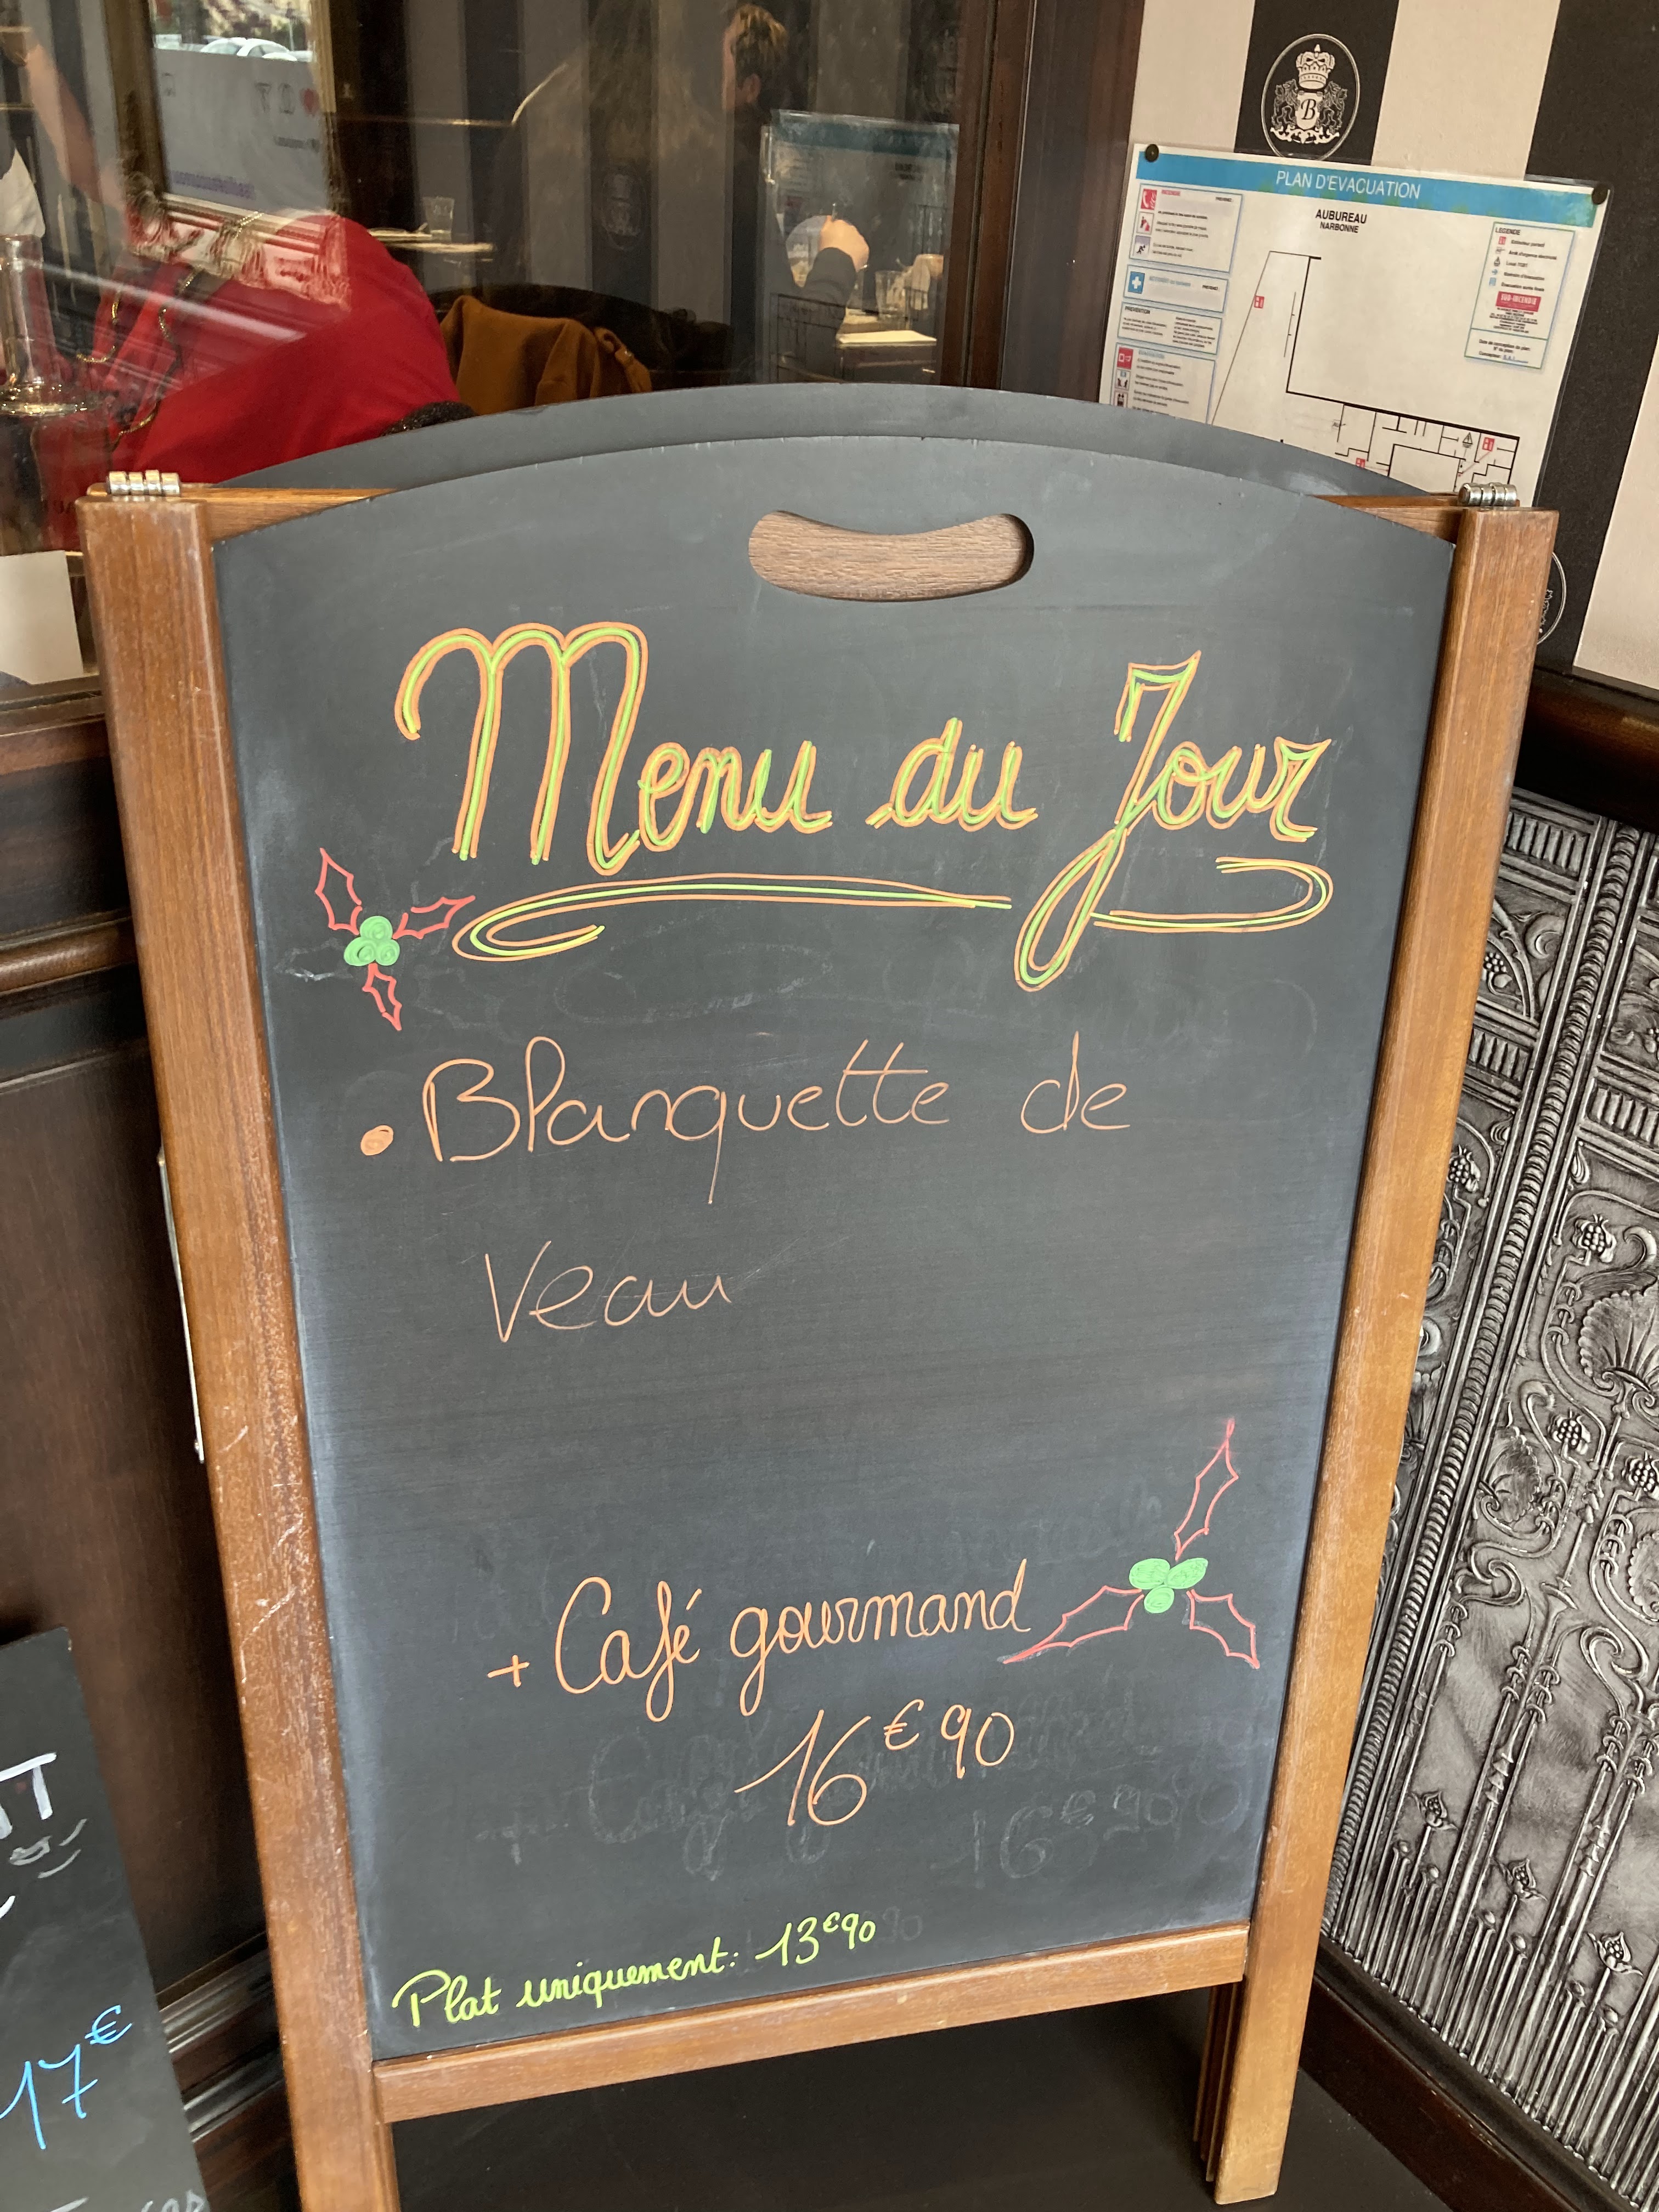 B
PLAN D'EVACUATION
AUBUREAU
NARBONNE
LEGENDE
SUD-INCENDIE
PREVENTION
Menu du Jour
• Blanquette de
Veau
+ Café gourmand
16€90
Plat uniquement: 13€90
17€